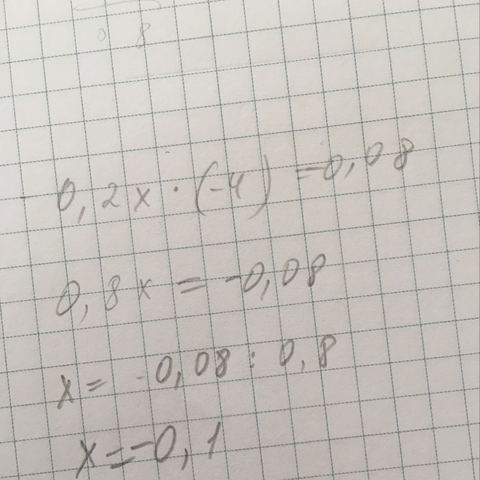 -0,2x · (-4) = -0,08
0,8x = -0,08
x = -0,08 : 0,8
x = -0,1